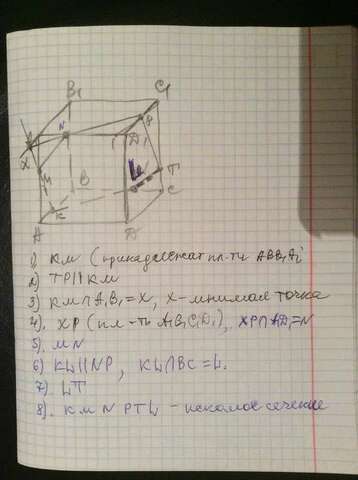 B₁ C₁
X N P
D₁
M
B T
K C
A D
1) КМ (принадлежит пл-ти АВВ₁А₁
2) TP||КМ
3) КМ∩A₁B₁=X, X-мнимая точка
4). XP (пл-ть A₁B₁C₁D₁), XP∩A₁D₁=N
5). MN
6) KL||NP, KL∩BC=L.
7) LT
8). KMNPTL - искомое сечение